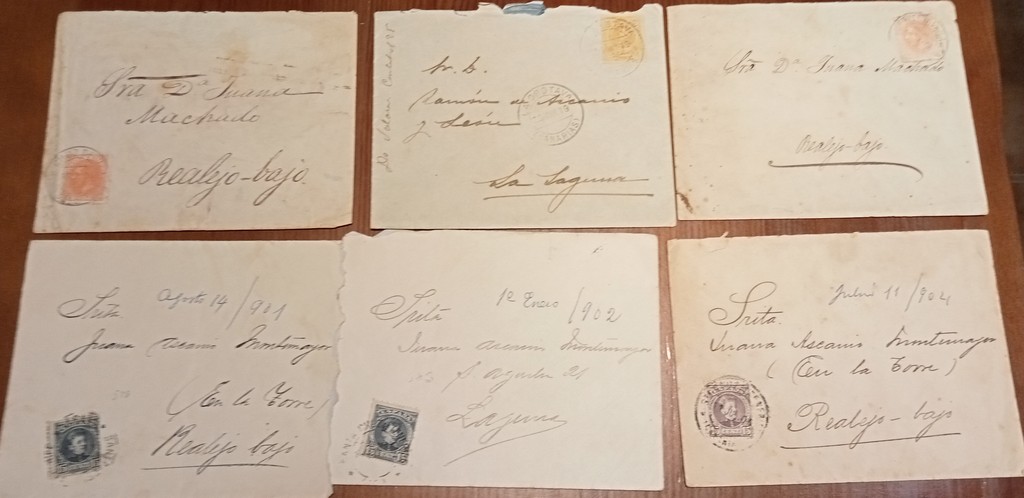 Sra Dª Juana
Machado
Realejo-bajo.
Ramón de Ascanio
y León
La Laguna
OROTAVA
(CANARIAS)
Sra Dª Juana Machado
Realejo-bajo.
Agosto 14/901
Srita
Juana Ascanio Montemayor
(En la Torre)
Realejo bajo
12 Enero/902
Srita
Juana Ascanio Montemayor
S. Agustin 21
Laguna
Julio 11/904
Srita.
Juana Ascanio Montemayor
(En la Torre)
Realejo-bajo